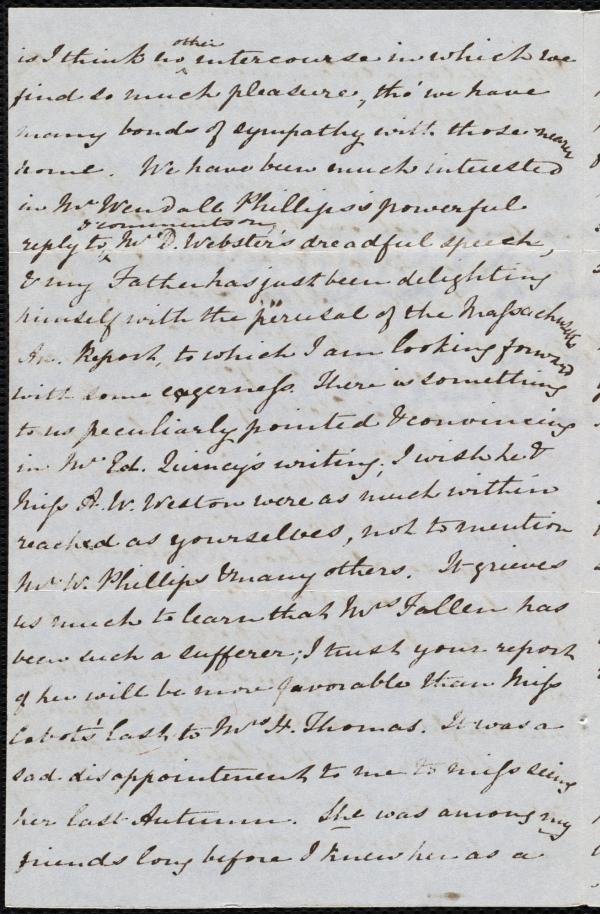 is I think no other intercourse in which we
find so much pleasure, tho' we have
many bonds of sympathy with those nearer
home. We have been much interested
in Mr Wendall Phillips's powerful
reply to & comments on Mr D. Webster's dreadful speech,
& my Father has just been delighting
himself with the perusal of the Massachusetts
An. Report, to which I am looking forward
with some eagerness. There is something
to us peculiarly pointed & convincing
in Mr Ed. Quincy's writing; I wish he &
Miss A. W. Weston were as much within
reach as yourselves, not to mention
Mr W. Phillips & many others. It grieves
us much to learn that Mrs Follen has
been such a sufferer; I trust your report
of her will be more favorable than Miss
Cabot's last to Mrs H. Thomas. It was a
sad disappointment to me to miss seeing
her last Autumn. She was among my
friends long before I knew her as a